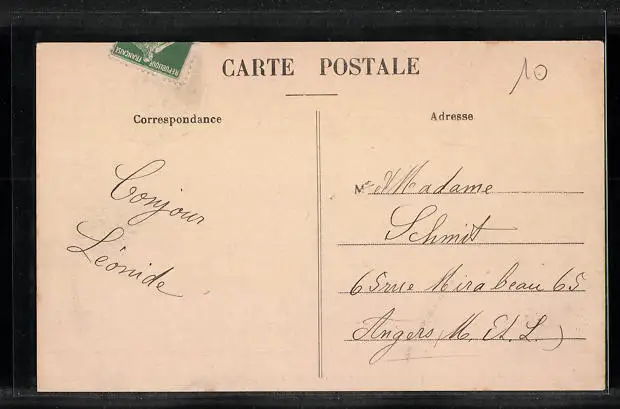 REPUBLIQUE FRANÇAISE
CARTE POSTALE
10
Correspondance
Adresse
Bonjour
Léonide
M Madame
Schmit
65 rue Mirabeau 65
Angers (M. Et. L.)